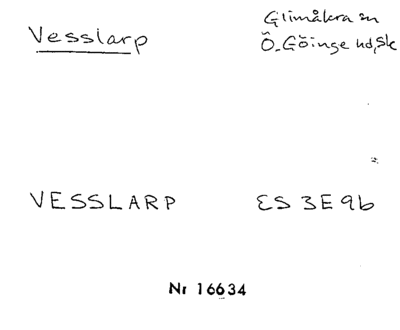 Vesslarp
Glimåkra sn
Ö. Göinge hd, Sk
VESSLARP
ES 3E 9b
Nr 16634